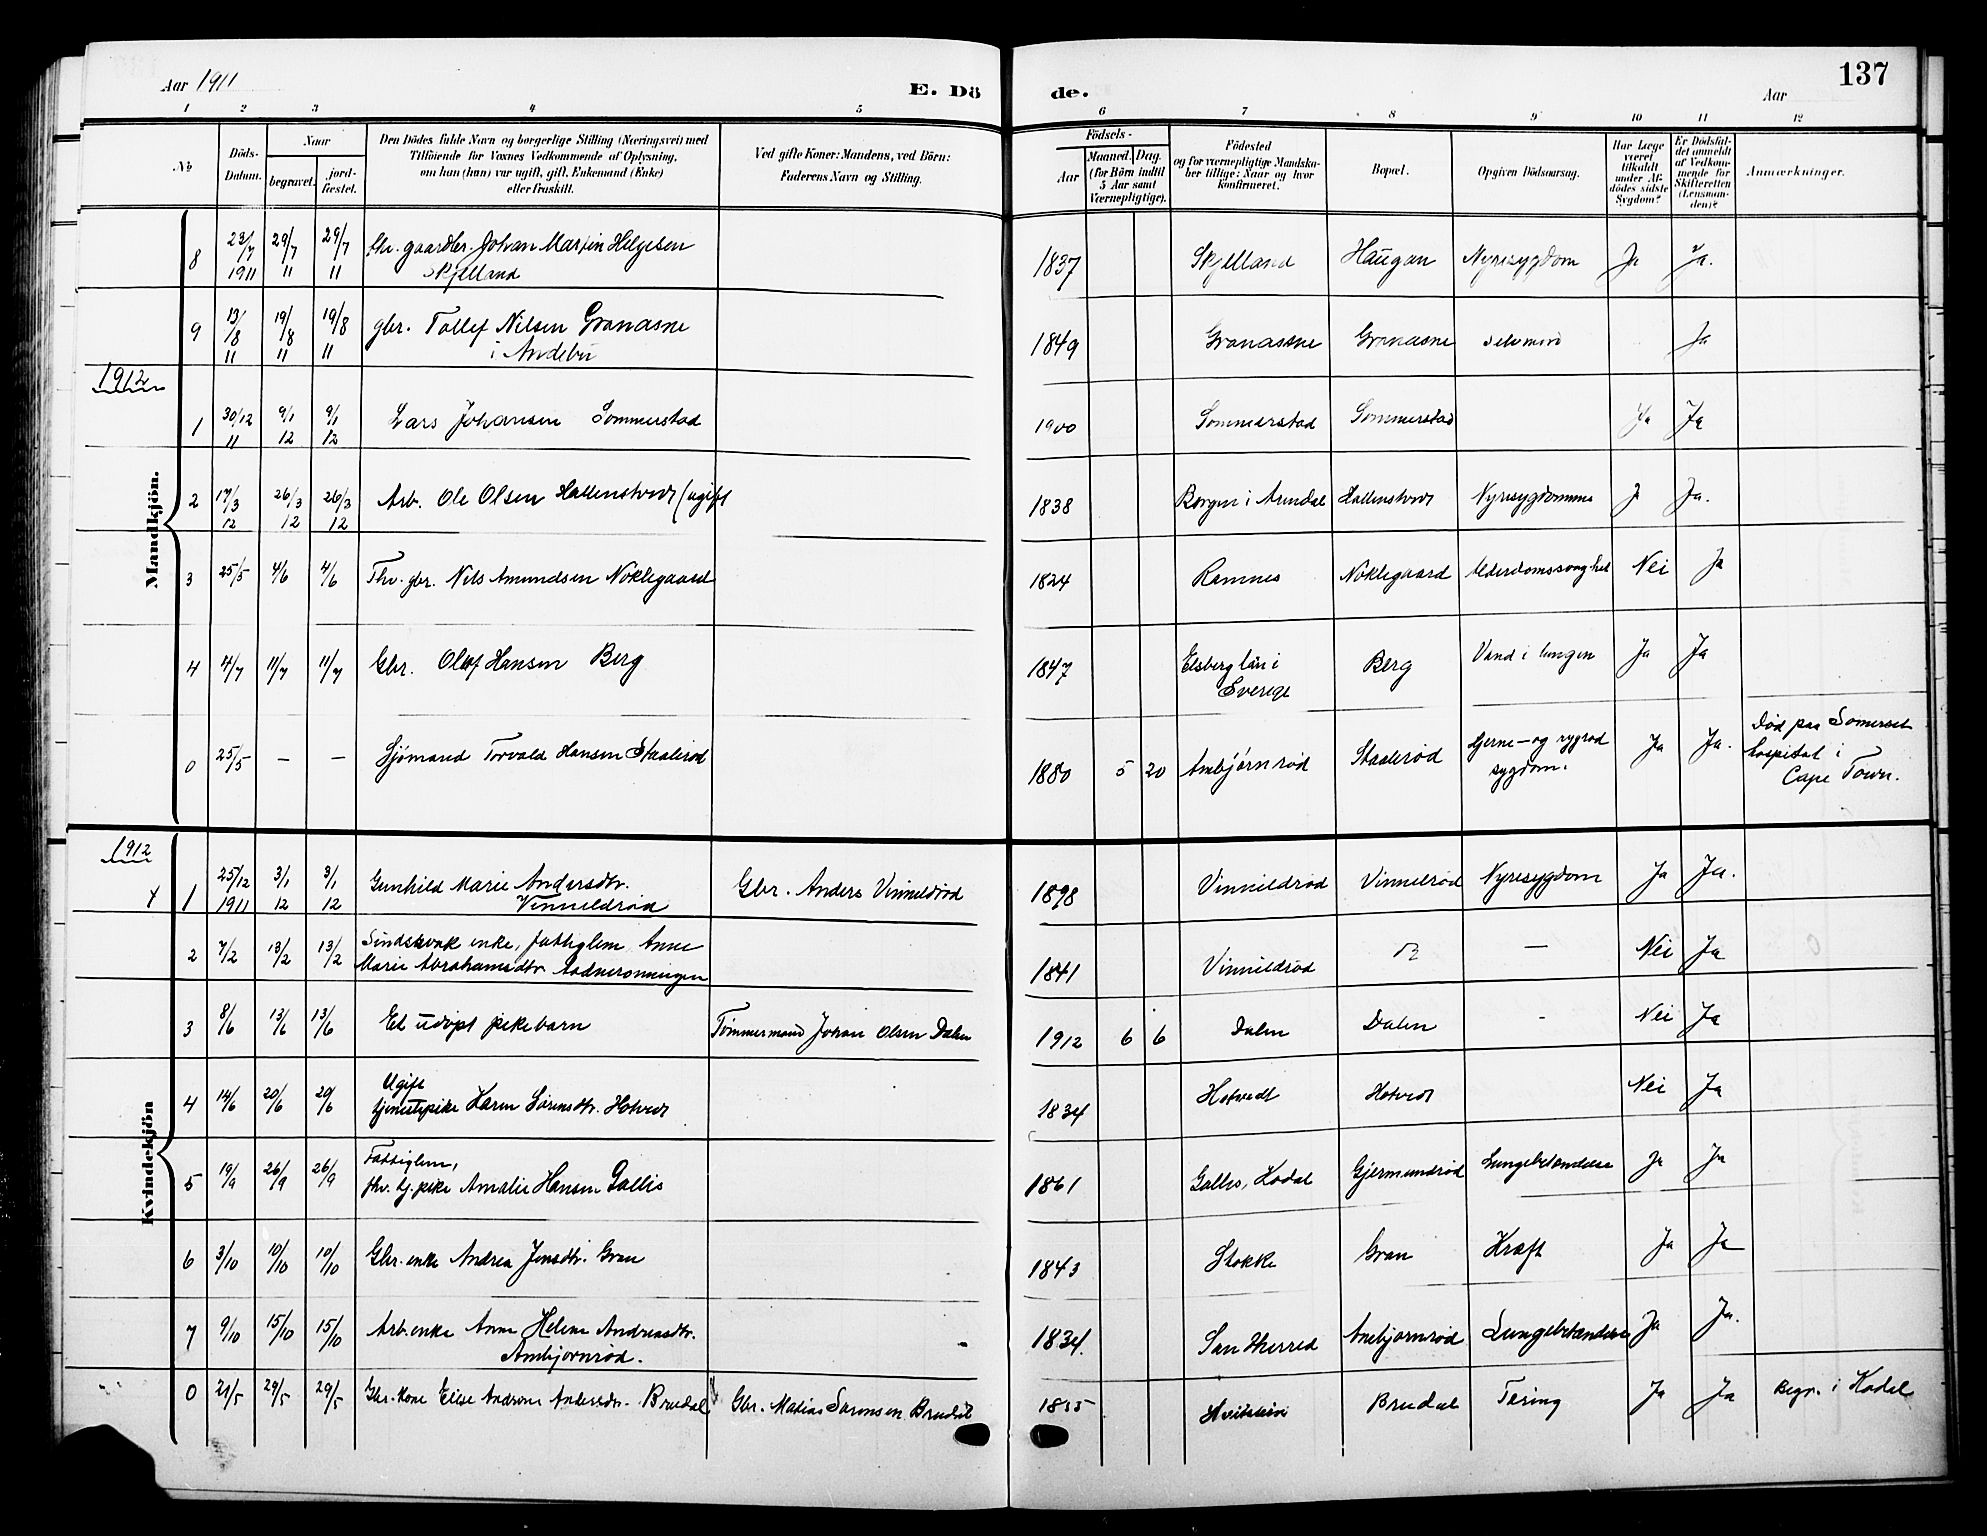 Aar 1911
E. Dö de.
Aar
137
1 2 3 4 5 6 7 8 9 10 11 12
No
Döds-Datum.
Naar
begravet.
jord-fæstet.
Den Dödes fulde Navn og borgerlige Stilling (Næringsvei) med
Tilföiende for Voxnes Vedkommende af Oplysning,
om han (hun) var ugift, gift, Enkemand (Enke)
eller fraskilt.
Ved gifte Koner: Mandens, ved Börn:
Faderens Navn og Stilling.
Födsels-
Aar
Maaned. Dag.
(for Börn indtil
5 Aar samt
Værnepligtige).
Födested
og for værnepligtige Mandska-
ber tillige: Naar og hvor
konfirmeret.
Bopæl.
Opgiven Dödsaarsag.
Har Læge
været
tilkaldt
under Af-
dödes sidste
Sygdom?
Er Dödsfal-
det anmeldt
af Vedkom-
mende for
Skifteretten
(Lensman-
den)?
Anmærkninger.
Mandkjön.
8 23/7 1911 29/7 11 29/7 11 fhv. gaardbr. Johan Martin Helgesen Skjelland 1837 Skjelland Haugan Nyresygdom Ja Ja.
9 13/8 11 19/8 11 19/8 11 gbr. Tollef Nilsen Granasne i Andebu 1849 Granasne Granasne Ja
1912
1 30/12 11 9/1 12 9/1 12 Lars Johansen Sommerstad 1900 Sommerstad Sommerstad Ja Ja
2 17/3 12 26/3 12 26/3 12 Arb. Ole Olsen Hallenstvedt (ugift 1838 Borgen i Arendal Hallenstvedt Nyresygdomme J Ja.
3 25/5 4/6 4/6 Fhv. gbr. Nils Amundsen Noklegaard 1824 Ramnes Noklegaard Alderdomssvaghed Nei Ja
4 4/7 11/7 11/7 Gbr. Olof Hansen Berg 1847 Elsberg län i Sverige Berg Vand i lungen Ja Ja
0 25/5 — — Sjømand Torvald Hansen Staalerød 1880 5 20 Ambjørnrød Staalerød Hjerne- og rygradsygdom. Ja Ja. Død paa Somerset hospital i Cape Town.
1912
Kvindekjön
1 25/12 1911 3/1 12 3/1 12 Gunhild Marie Andersdtr. Vinnildrød Gbr. Anders Vinnildrød 1898 Vinnildrød Vinnilrød Nyresygdom Ja Ja.
2 7/2 13/2 13/2 Sindssvak enke, fattiglem Anne Marie Abrahamsdtr. Aadneronningen 1841 Vinnildrød — Nei Ja
3 8/6 13/6 13/6 Et udøpt pikebarn Tømmermand Johan Olsen Dalen 1912 6 6 Dalen Dalen - Nei Ja
4 14/6 20/6 20/6 Ugift tjenestepike Karen Sørensdtr. Hotvedt 1834 Hotvedt Hotvedt Nei Ja
5 19/9 26/9 26/9 Fattiglem, fhv. tj.pike Amalie Hansen Gallis 1861 Gallis, Kodal Gjermundrød Lungebetændelse Ja Ja
6 3/10 10/10 10/10 Gbr. enke Andrea Jensdtr. Gran 1843 Stokke Gran Kræft Ja Ja
7 9/10 15/10 15/10 Arb. enke Anne Helene Andreasdtr. Ambjørnrød. 1834. Sandherred Ambjørnrød Lungebetændelse Ja Ja.
0 21/5 29/5 29/5 Gbr. kone Elise Andersdtr. Bruedal Gbr. Matias Sørensen Bruedal 1855 Bruedal Tæring Ja Ja Begr. i Kodal